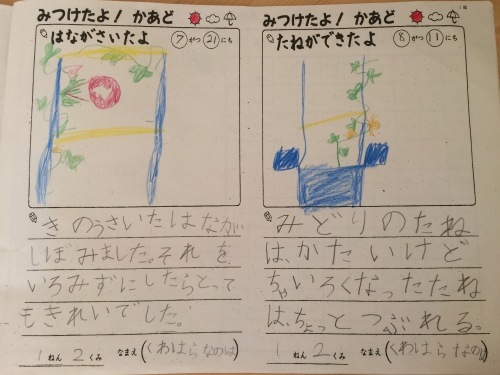 みつけたよ！ かあど
はながさいたよ
7がつ21にち
きのうさいたはなが
しぼみました。それを
いろみずにしたらとって
もきれいでした。
1ねん2くみ なまえ(くわはらなのは)
みつけたよ！ かあど
たねができたよ
8がつ11にち
みどりのたね
は、かたいけど
ちゃいろくなったたね
は、ちょっとつぶれる。
1ねん2くみ なまえ(くわはらなのは)